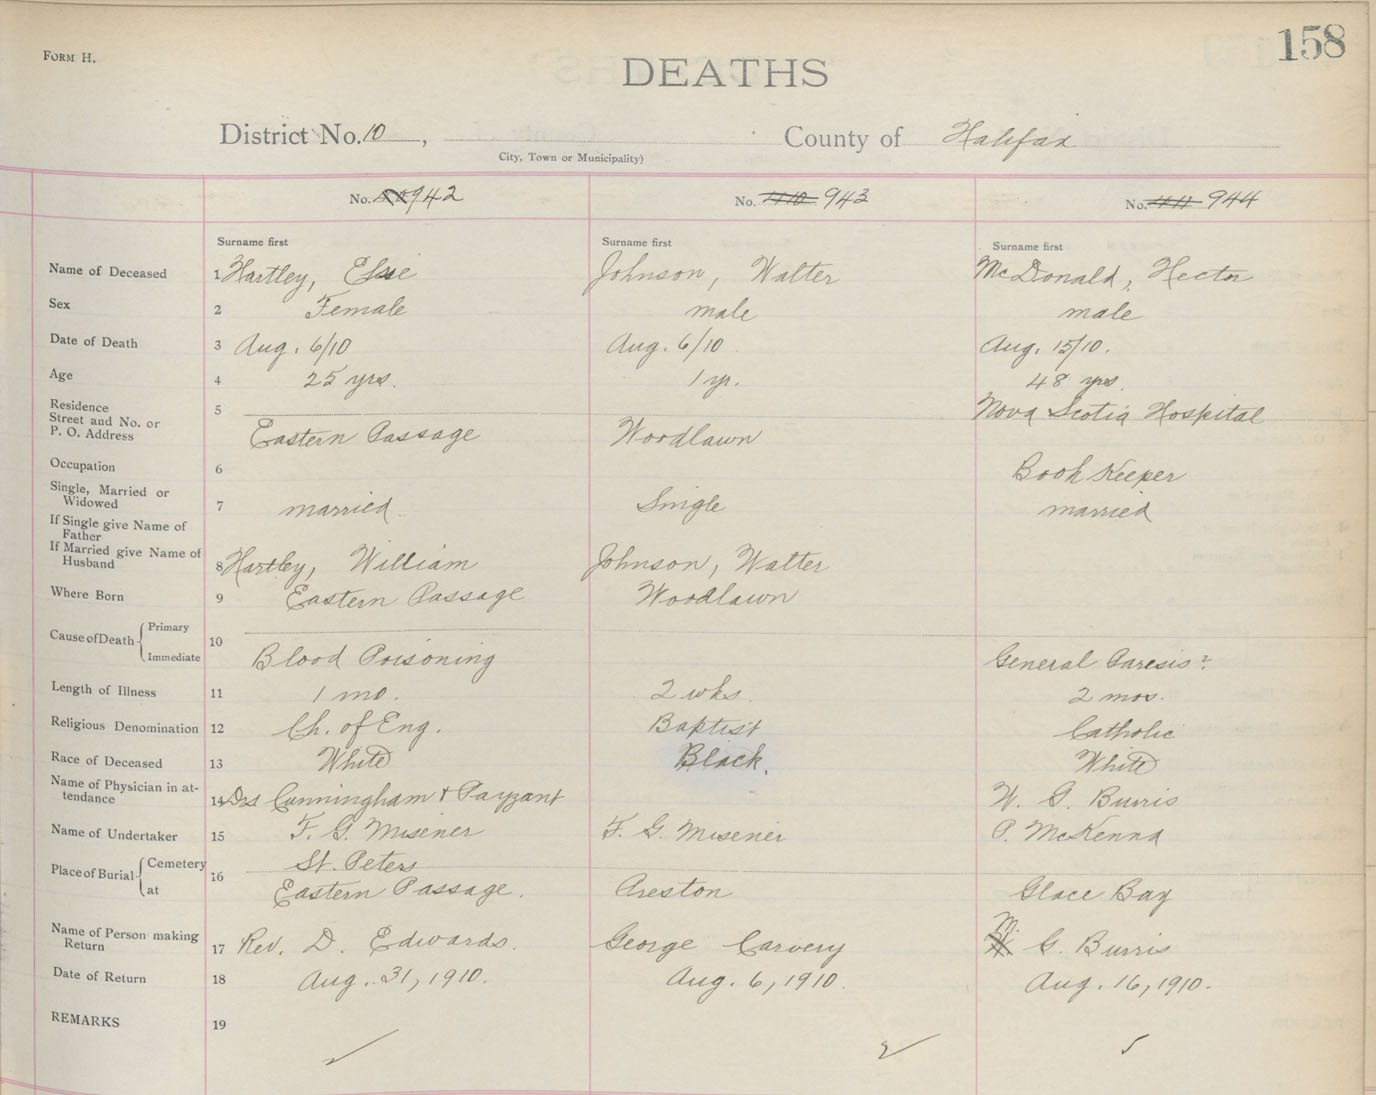 FORM H.
158
DEATHS
District No. 10, County of Halifax
City, Town or Municipality)
No. 942 No. 1110 943 No. 1111 944
Surname first Surname first Surname first
Name of Deceased 1 Hartley, Elsie Johnson, Walter McDonald, Hector
Sex 2 Female male male
Date of Death 3 Aug. 6/10 Aug. 6/10 Aug. 15/10.
Age 4 25 yrs. 1 yr. 48 yrs.
Residence 5 Nova Scotia Hospital
Street and No. or
P. O. Address Eastern Passage Woodlawn
Occupation 6 Book Keeper
Single, Married or
Widowed 7 married Single married
If Single give Name of
Father
If Married give Name of
Husband 8 Hartley, William Johnson, Walter
Where Born 9 Eastern Passage Woodlawn
Cause of Death Primary 10
Immediate Blood Poisoning General Paresis?
Length of Illness 11 1 mo. 2 wks. 2 mos.
Religious Denomination 12 Ch. of Eng. Baptist Catholic
Race of Deceased 13 White Black. White
Name of Physician in at-
tendance 14 Drs Cunningham & Payzant W. G. Burris
Name of Undertaker 15 F. G. Misener F. G. Misener P. McKenna
Place of Burial Cemetery 16 St. Peters
at Eastern Passage. Preston Glace Bay
Name of Person making
Return 17 Rev. D. Edwards. George Carvery M. G. Burris
Date of Return 18 Aug. 31, 1910. Aug. 6, 1910. Aug. 16, 1910.
REMARKS 19